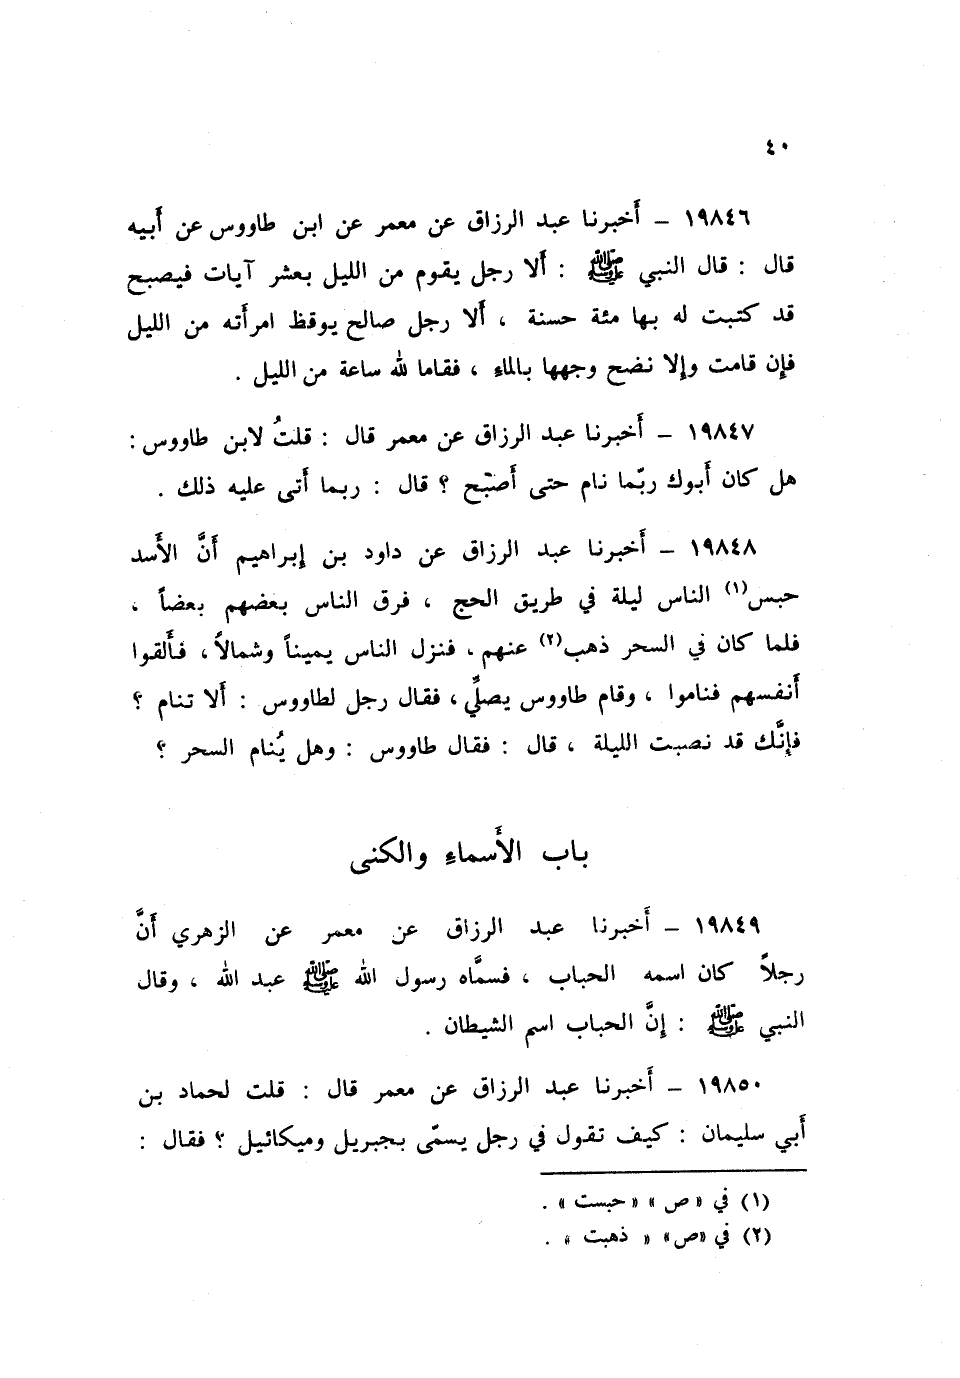 ٤٠
١٩٨٤٦ – أَخبرنا عبد الرزاق عن معمر عن ابن طاووس عن أَبيه
قال : قال النبي ﷺ : أَلا رجل يقوم من الليل بعشر آيات فيصبح
قد كتبت له بها مئة حسنة ، أَلا رجل صالح يوقظ امرأَته من الليل
فإِن قامت وإِلا نضح وجهها بالماءِ ، فقاما لله ساعة من الليل .
١٩٨٤٧ – أَخبرنا عبد الرزاق عن معمر قال : قلتُ لابن طاووس :
هل كان أَبوك ربّما نام حتى أَصبْح ؟ قال : ربما أَتى عليه ذلك .
١٩٨٤٨ – أَخبرنا عبد الرزاق عن داود بن إِبراهيم أَنَّ الأَسد
حبس(١) الناس ليلة في طريق الحج ، فرق الناس بعضهم بعضاً ،
فلما كان في السحر ذهب(٢) عنهم ، فنزل الناس يميناً وشمالاً ، فأَلقوا
أَنفسهم فناموا ، وقام طاووس يصلِّي ، فقال رجل لطاووس : أَلا تنام ؟
فإِنَّك قد نصبت الليلة ، قال : فقال طاووس : وهل يُنام السحر ؟
باب الأَسماءِ والكنى
١٩٨٤٩ – أَخبرنا عبد الرزاق عن معمر عن الزهري أَنَّ
رجلاً كان اسمه الحباب ، فسمَّاه رسول الله ﷺ عبد الله ، وقال
النبي ﷺ : إِنَّ الحباب اسم الشيطان .
١٩٨٥٠ – أَخبرنا عبد الرزاق عن معمر قال : قلت لحماد بن
أَبي سليمان : كيف تقول في رجل يسمّى بجبريل وميكائيل ؟ فقال :
(١) في « ص » « حبست » .
(٢) في «ص» « ذهبت » .